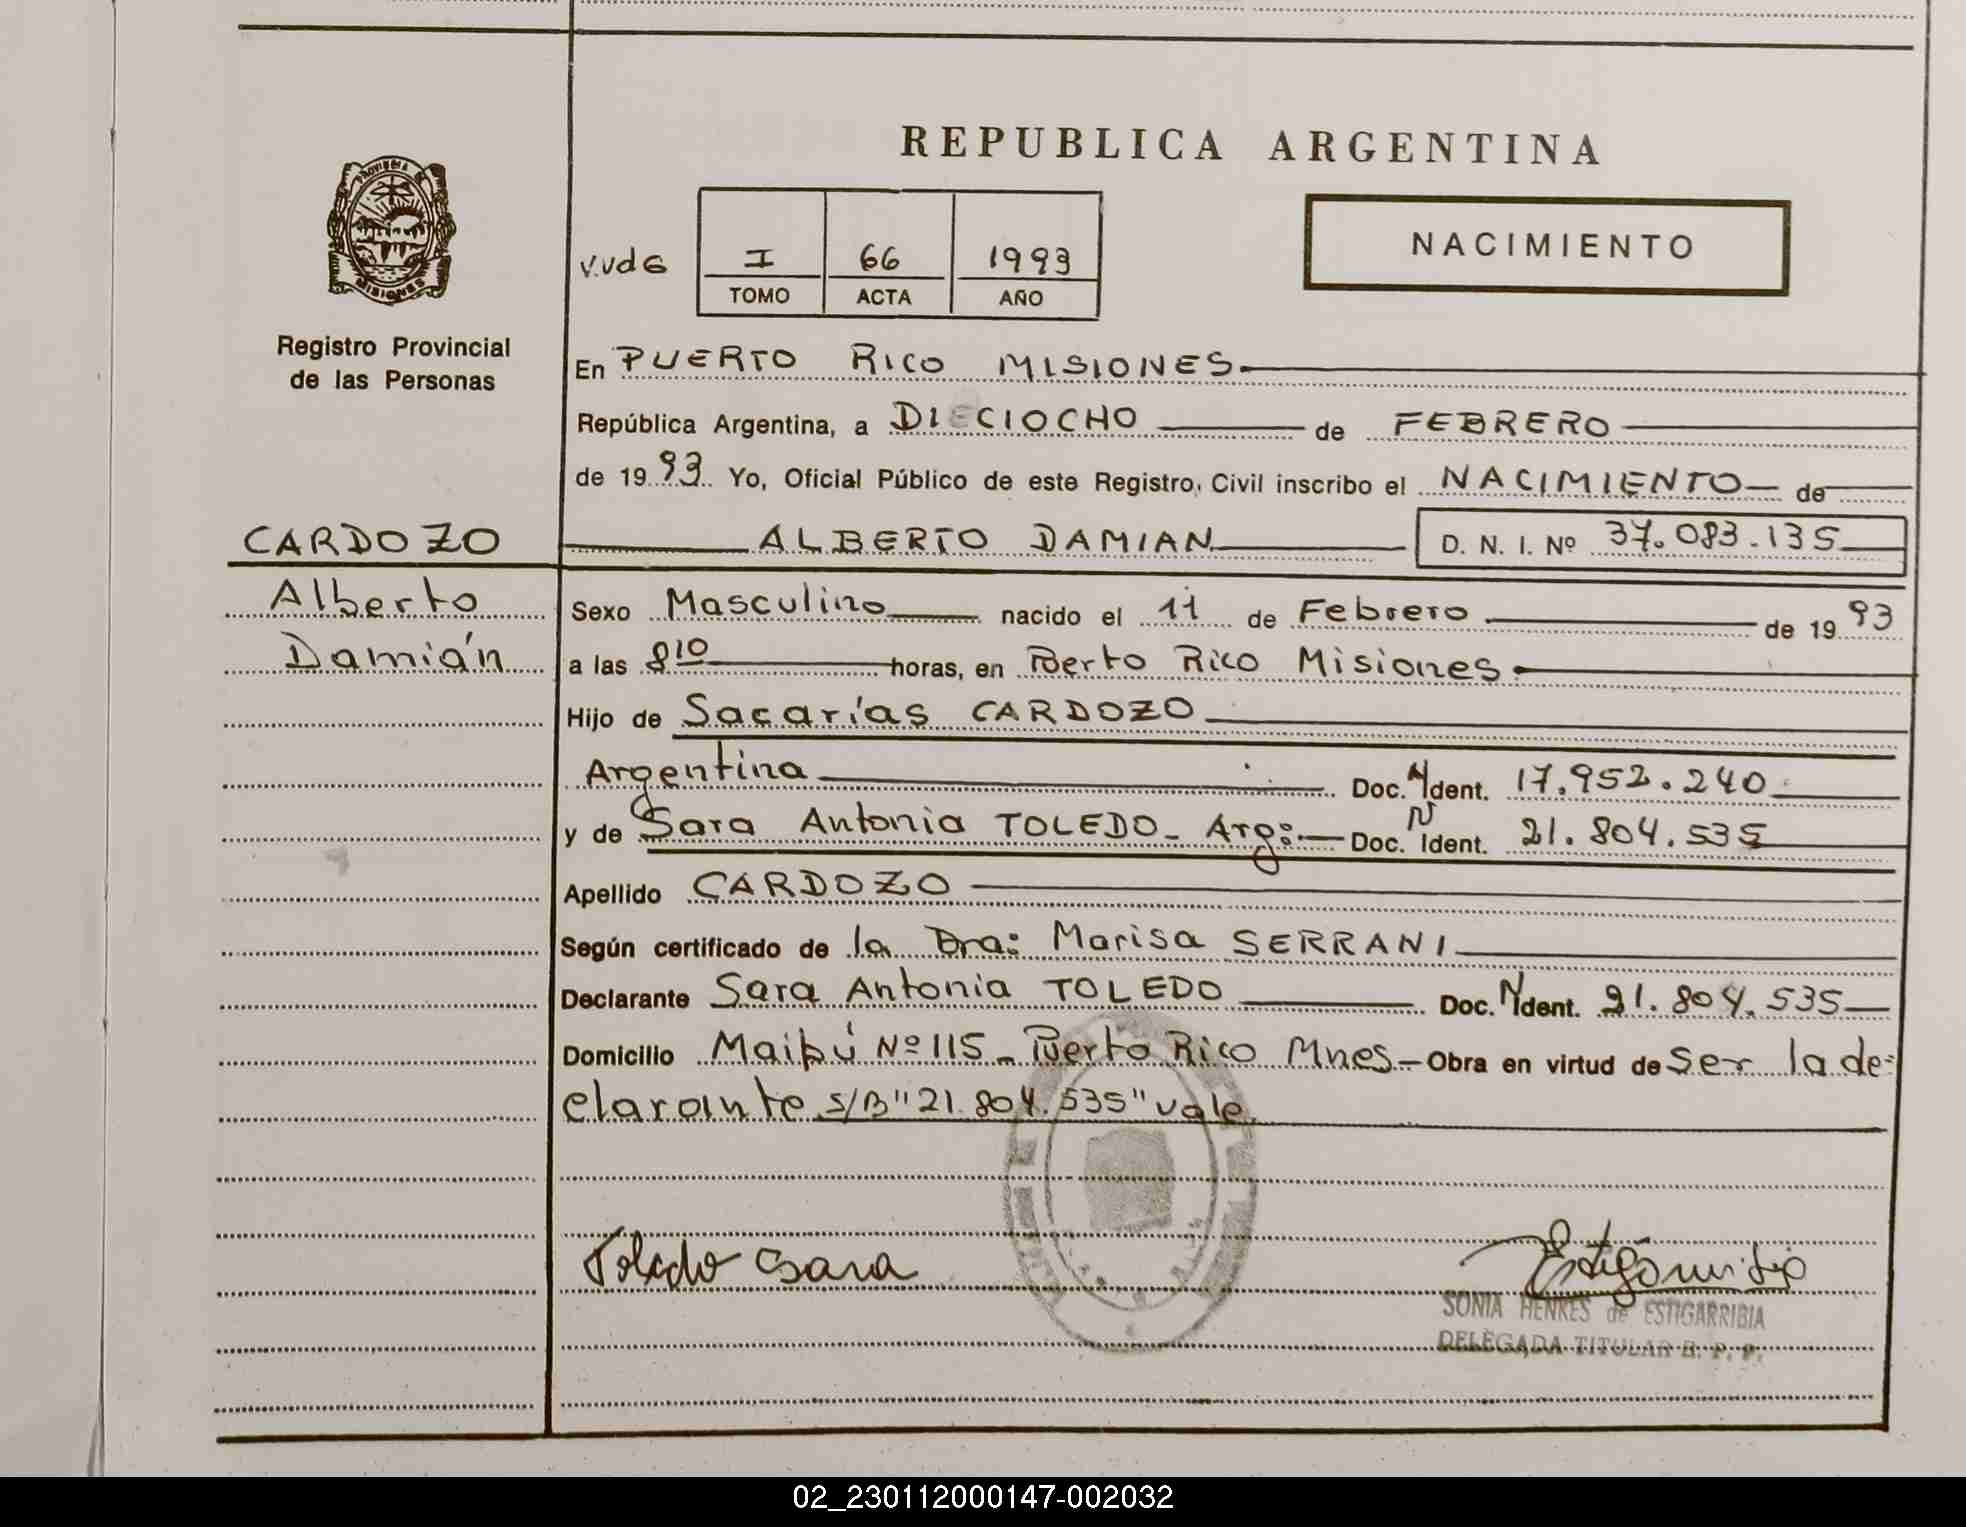 REPUBLICA ARGENTINA
PROVINCIA
MISIONES
Registro Provincial
de las Personas
V.Vd6
I 66 1993
TOMO ACTA AÑO
NACIMIENTO
En PUERTO RICO MISIONES
República Argentina, a DIECIOCHO de FEBRERO
de 1993 Yo, Oficial Público de este Registro, Civil inscribo el NACIMIENTO de
CARDOZO ALBERTO DAMIAN D. N. I. Nº 37.083.135
Alberto Sexo Masculino nacido el 11 de Febrero de 1993
Damián a las 8 10 horas, en Puerto Rico Misiones
Hijo de Sacarías CARDOZO
Argentina Doc. N Ident. 17.952.240
y de Sara Antonia TOLEDO - Arg: Doc. N Ident. 21.804.535
Apellido CARDOZO
Según certificado de la Dra: Marisa SERRANI
Declarante Sara Antonia TOLEDO Doc. N Ident. 21.804.535
Domicilio Maipú Nº 115 - Puerto Rico Mnes - Obra en virtud de Ser la de=
clarante S/B "21.804.535" vale
Toledo Sara
SONIA HENKES de ESTIGARRIBIA
DELEGADA TITULAR R. P. P.
02_230112000147-002032